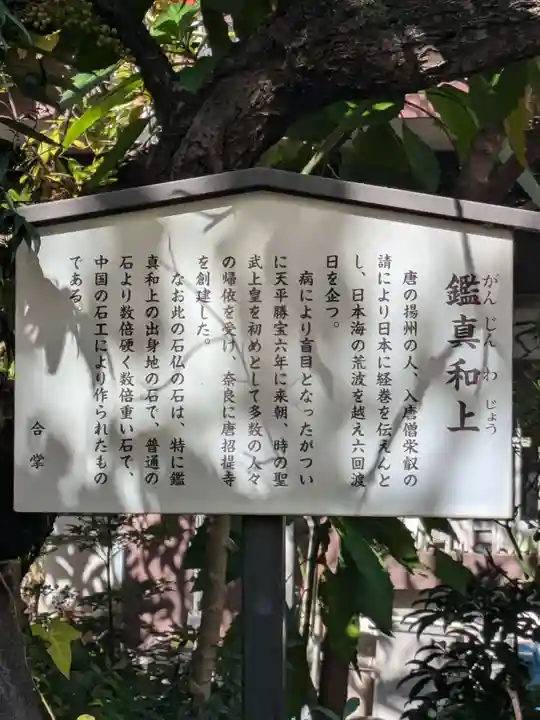 鑑真和上
がんじんわじょう
唐の揚州の人、入唐僧栄叡の
請により日本に経巻を伝えんと
し、日本海の荒波を越え六回渡
日を企つ。
病により盲目となったがつい
に天平勝宝六年に来朝、時の聖
武上皇を初めとして多数の人々
の帰依を受け、奈良に唐招提寺
を創建した。
なお此の石仏の石は、特に鑑
真和上の出身地の石で、普通の
石より数倍硬く数倍重い石で、
中国の石工により作られたもの
である。
合掌